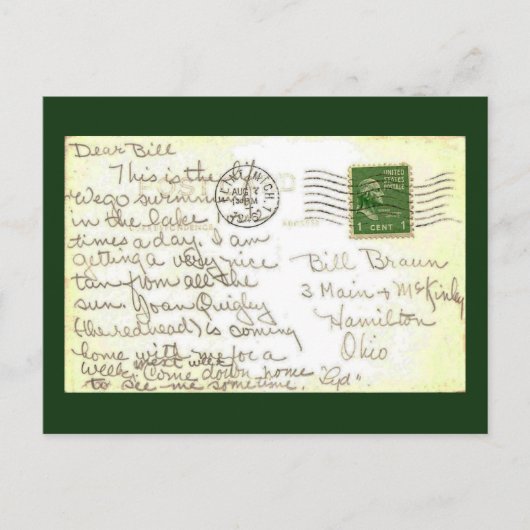 Dear Bill
This is the life
We go swimming
in the lake
times a day. I am
getting a very nice
tan from all the
sun. Joan Quigley
(the redhead) is coming
home with me for a
week next week
Come down home
to see me sometime. "Lyd"
POST
CORRESPONDENCE
ADDRESS
FLINT, MICH.
AUG
PM
UNITED
STATES
POSTAGE
1 CENT 1
Bill Braun
3 Main + McKinley
Hamilton
Ohio